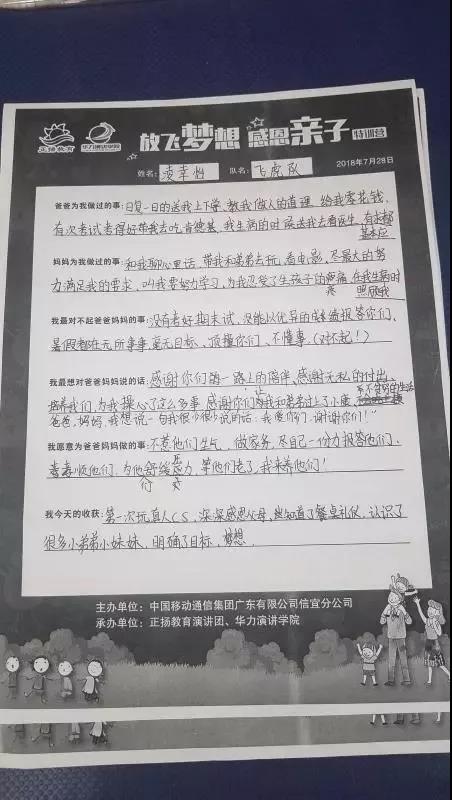 正扬教育
华力演讲学院
放飞梦想 感恩亲子 特训营
姓名: 凌幸怡 队名: 飞虎队
2018年7月28日
爸爸为我做过的事: 日复一日的送我上下学、教我做人的道理 给我零花钱,
有次考试考得好带我去吃肯德基、我生病的时候送我去看医生,有求都
基本应
妈妈为我做过的事: 和我聊心里话、带我和弟弟去玩,看电影,尽最大的努
力满足我的要求、叫我要努力学习,为我忍受了生孩子的疼痛,在我生病时
疼 照顾我
我最对不起爸爸妈妈的事: 没有考好期末试、没能以优异的成绩报答你们、
暑假都在无所事事,毫无目标、顶撞你们、不懂事、(对不起!)
我最想对爸爸妈妈说的话: 感谢你们一路上的陪伴,感谢无私的付出、
培养我们,为我操心了这么多事 感谢你们让我和弟弟过上了小康、不穷的生活
爸爸,妈妈,我想说一句我很少很少说的话:我爱你们,谢谢你们!"
我愿意为爸爸妈妈做的事: 不惹他们生气,做家务,尽自己一份力报答他们、
孝顺他们、为他舒缓压力,等他们老了,我来养他们!
们
我今天的收获: 第一次玩真人CS,深深感恩父母,知道了餐桌礼仪,认识了
很多小弟弟小妹妹,明确了目标,梦想.
主办单位: 中国移动通信集团广东有限公司信宜分公司
承办单位: 正扬教育演讲团、华力演讲学院